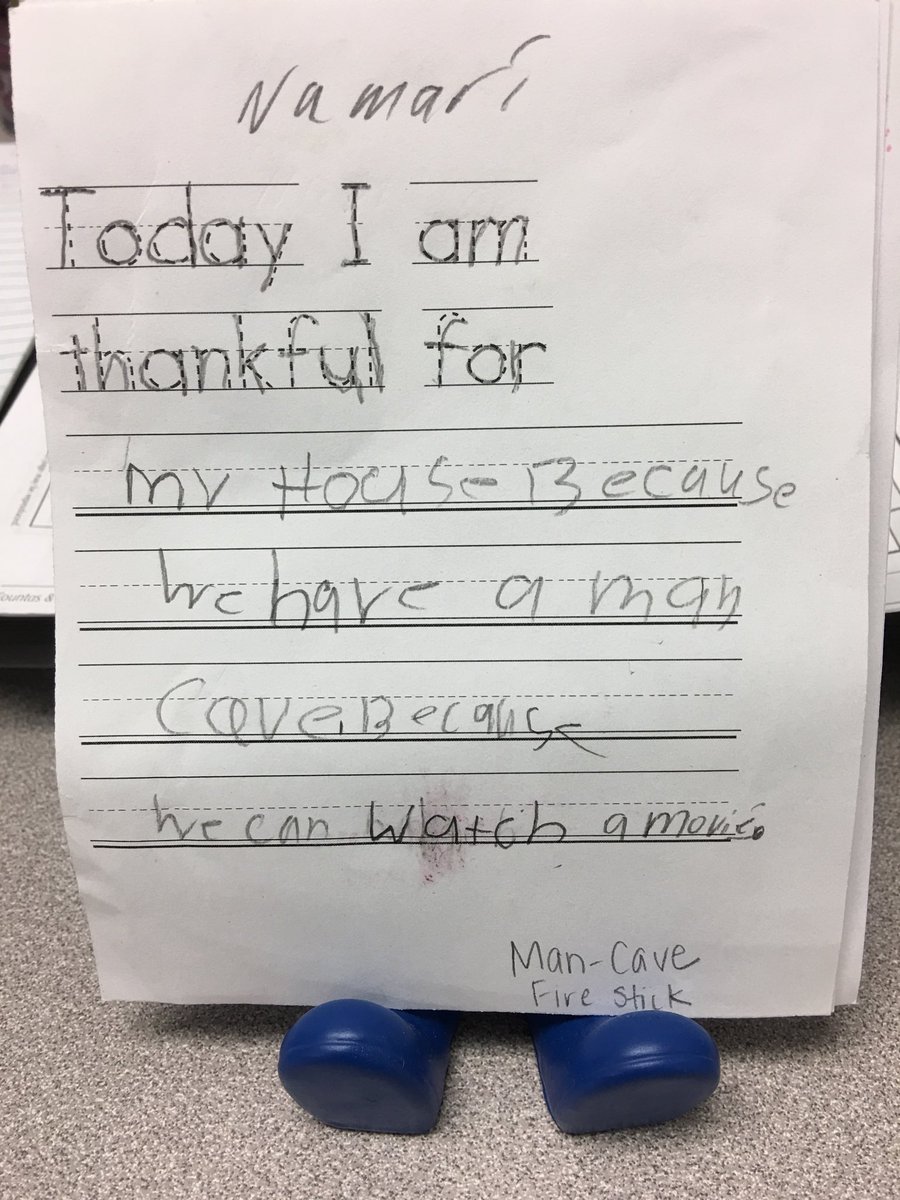 Namari
Today I am
thankful for
my House Because
We have a man
Cave. Because
We can watch a movie.
Man-Cave
Fire Stick